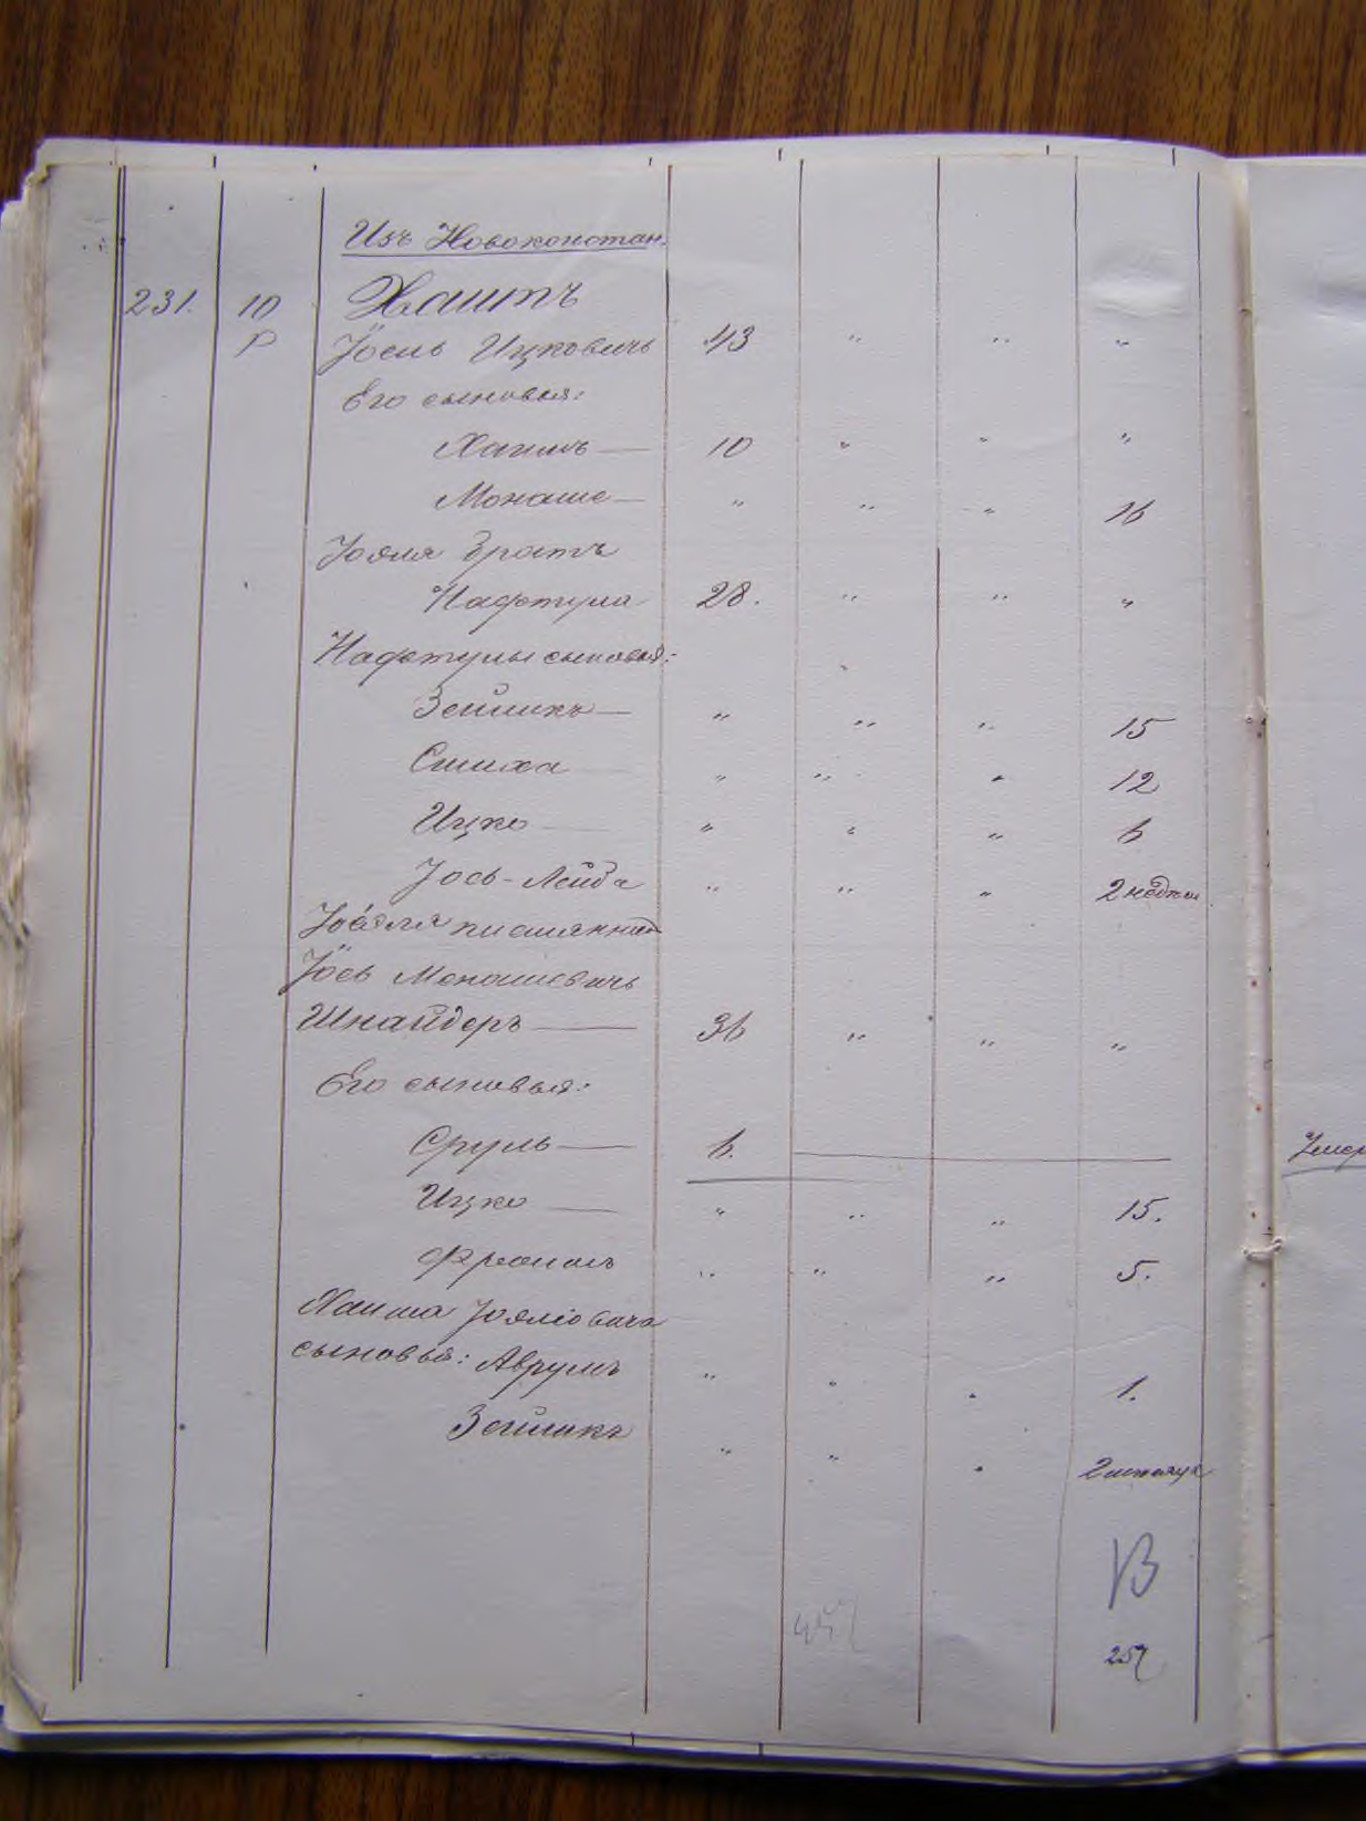 Изъ Новоконстан.
231. 10 Хаитъ
Р Іосль Ицковичъ 43 " " "
Его сыновья:
Хаимъ — 10 " " "
Монаше — " " " 16
Іоэля братъ
Нафтула 28. " " "
Нафтулы сыновья:
Зейликъ — " " " 15
Симха " " " 12
Ицко — " " " 6
Іось-Лейба " " " 2 недели
Іоэля племянникъ
Іось Монашевичъ
Шнайдеръ — 36 " " "
Его сыновья:
Сруль — 6.
Ицко — " " " 15.
Фроимъ " " " 5.
Хаима Іоэліовича
сыновья: Аврумъ " " " 1.
Зейликъ " " " 2 месяца
13
257